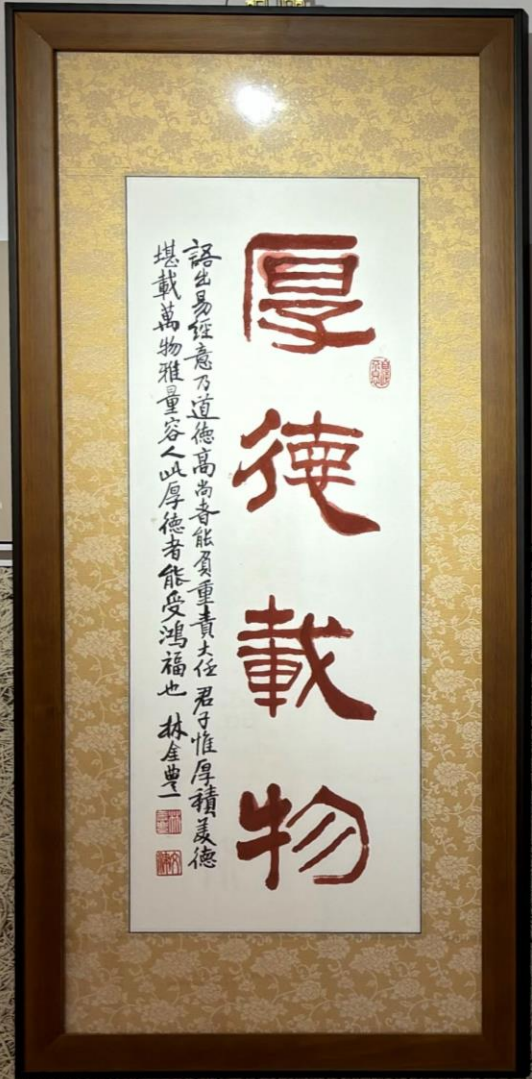 厚德載物
語出易經意乃道德高尚者能負重責大任君子惟厚積美德
堪載萬物雅量容人此厚德者能受鴻福也 林金豊一